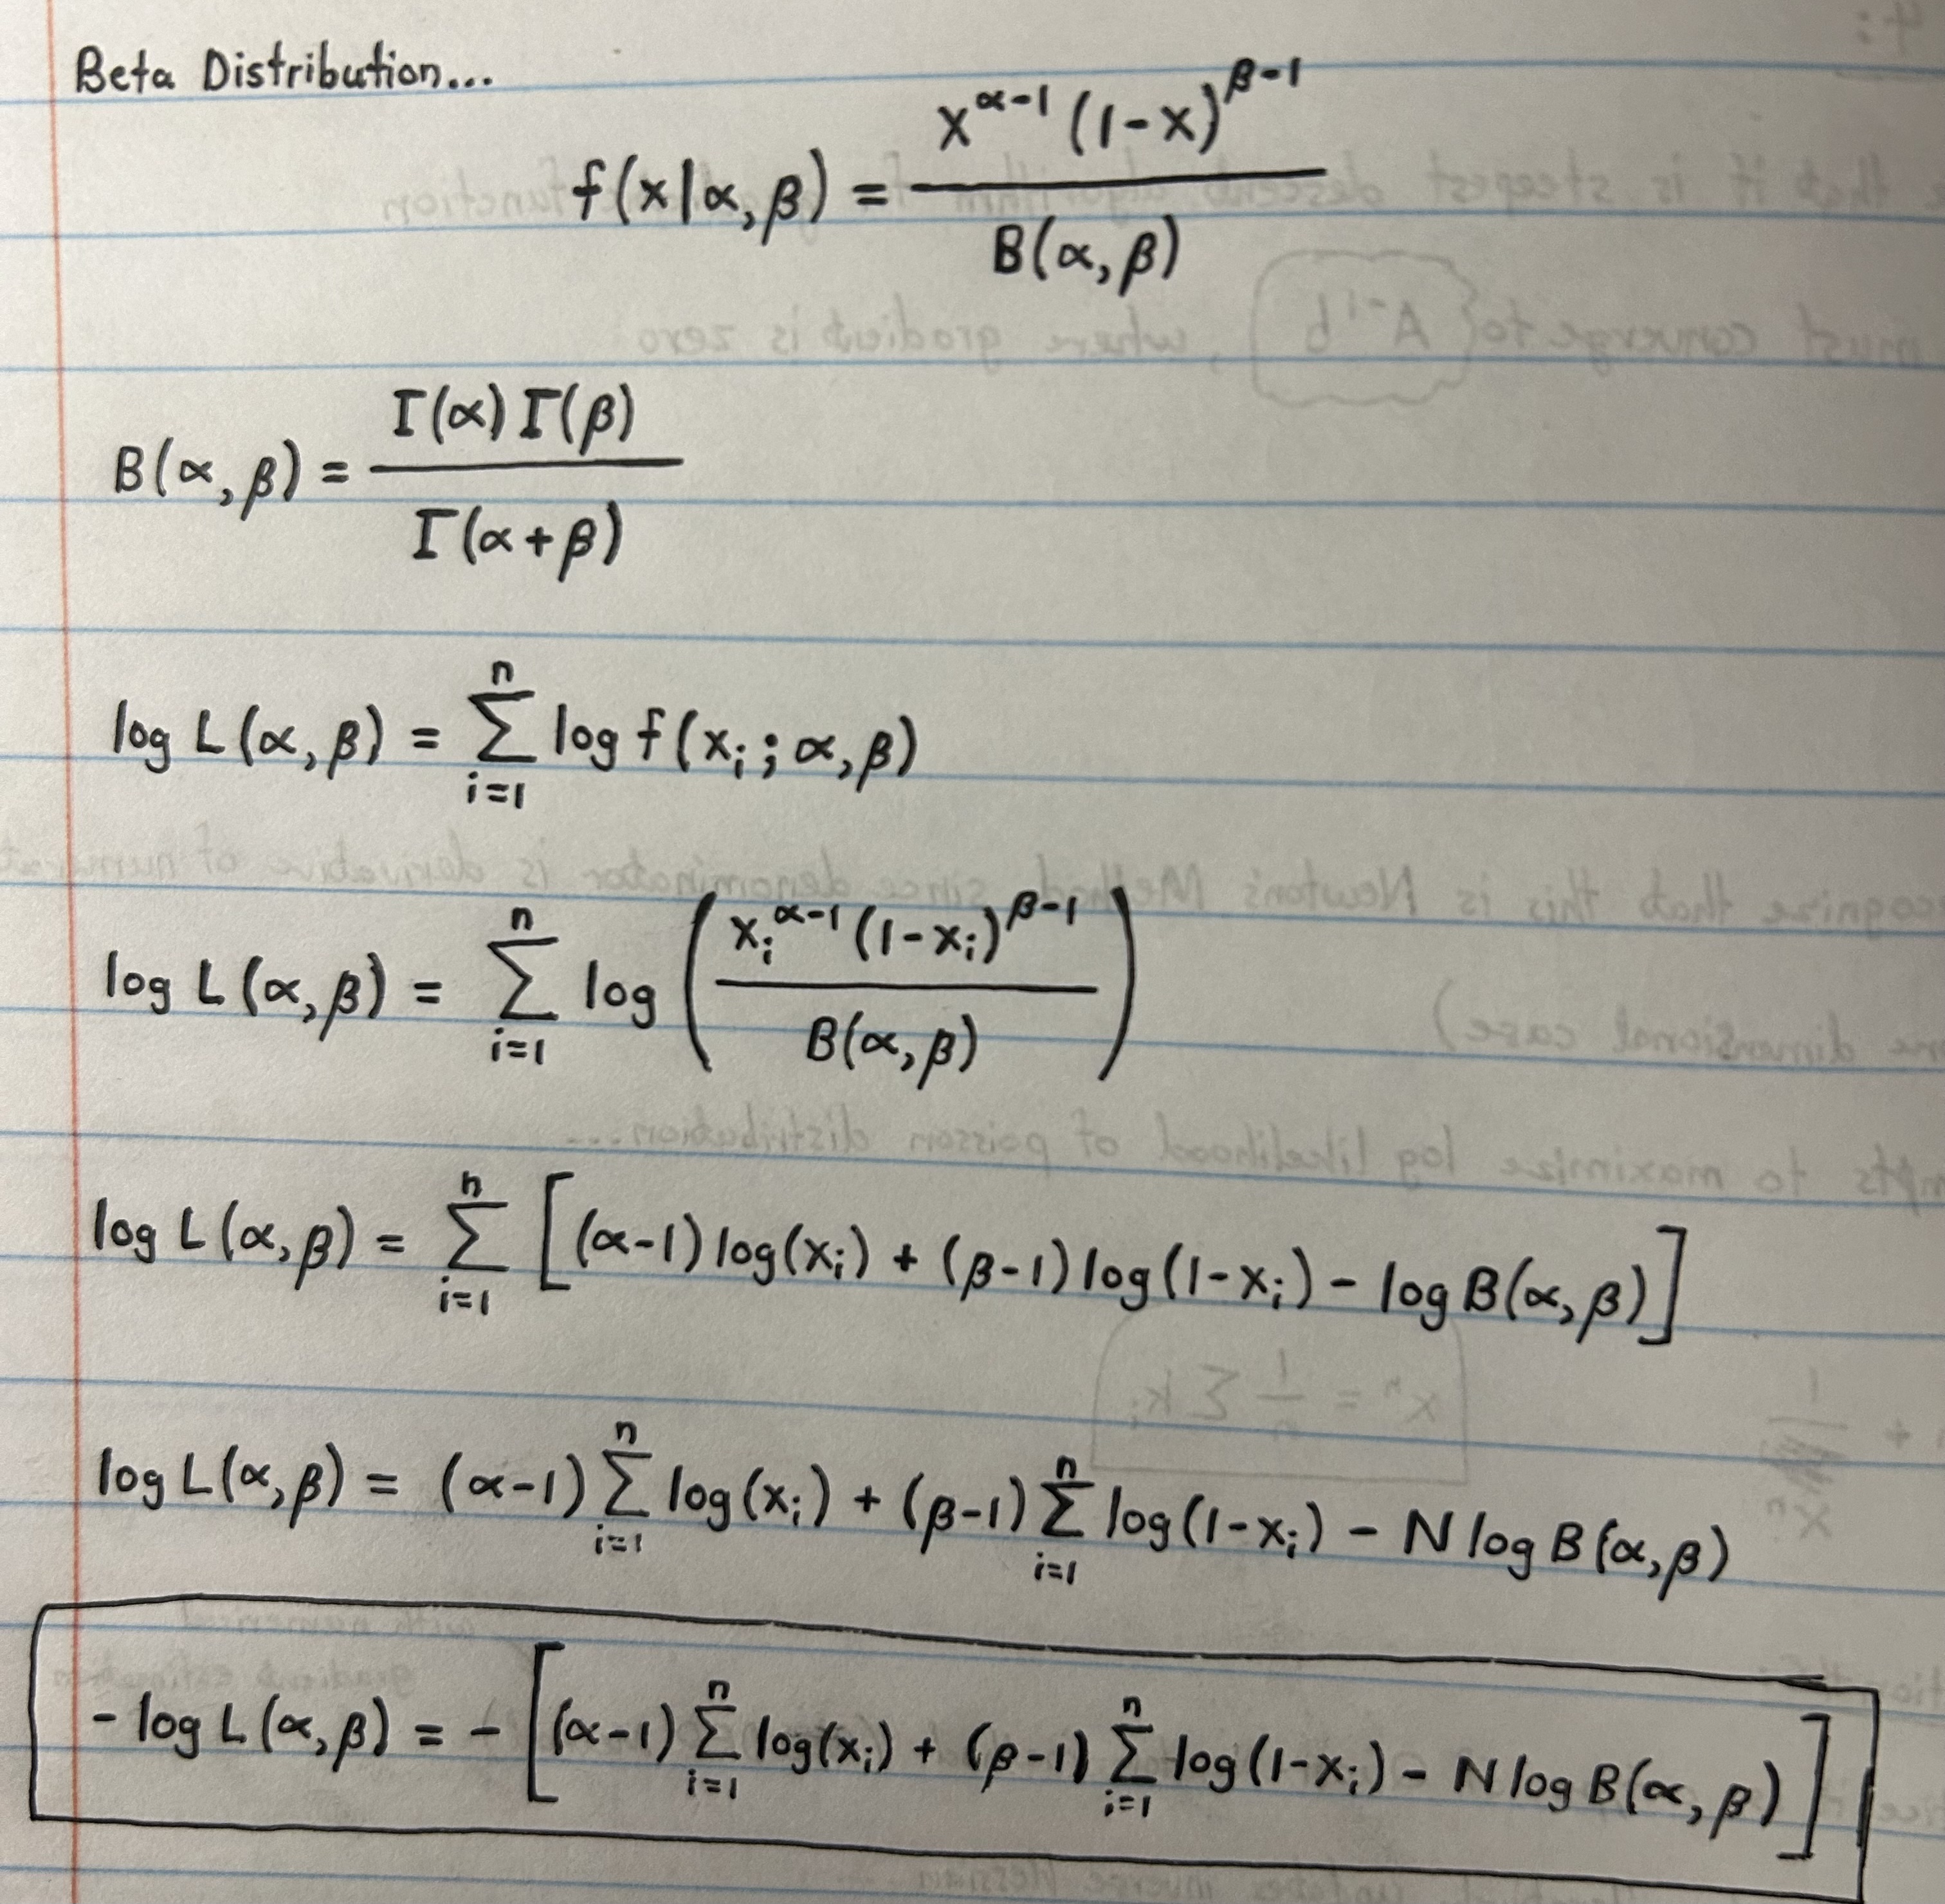 Beta Distribution...
f(x|α,β) = x^{α-1} (1-x)^{β-1} / B(α,β)
B(α,β) = Γ(α) Γ(β) / Γ(α+β)
log L(α,β) = ∑_{i=1}^{n} log f(x_i; α,β)
log L(α,β) = ∑_{i=1}^{n} log ( x_i^{α-1} (1-x_i)^{β-1} / B(α,β) )
log L(α,β) = ∑_{i=1}^{n} [(α-1) log(x_i) + (β-1) log(1-x_i) - log B(α,β)]
log L(α,β) = (α-1) ∑_{i=1}^{n} log(x_i) + (β-1) ∑_{i=1}^{n} log(1-x_i) - N log B(α,β)
-log L(α,β) = - [(α-1) ∑_{i=1}^{n} log(x_i) + (β-1) ∑_{i=1}^{n} log(1-x_i) - N log B(α,β)]